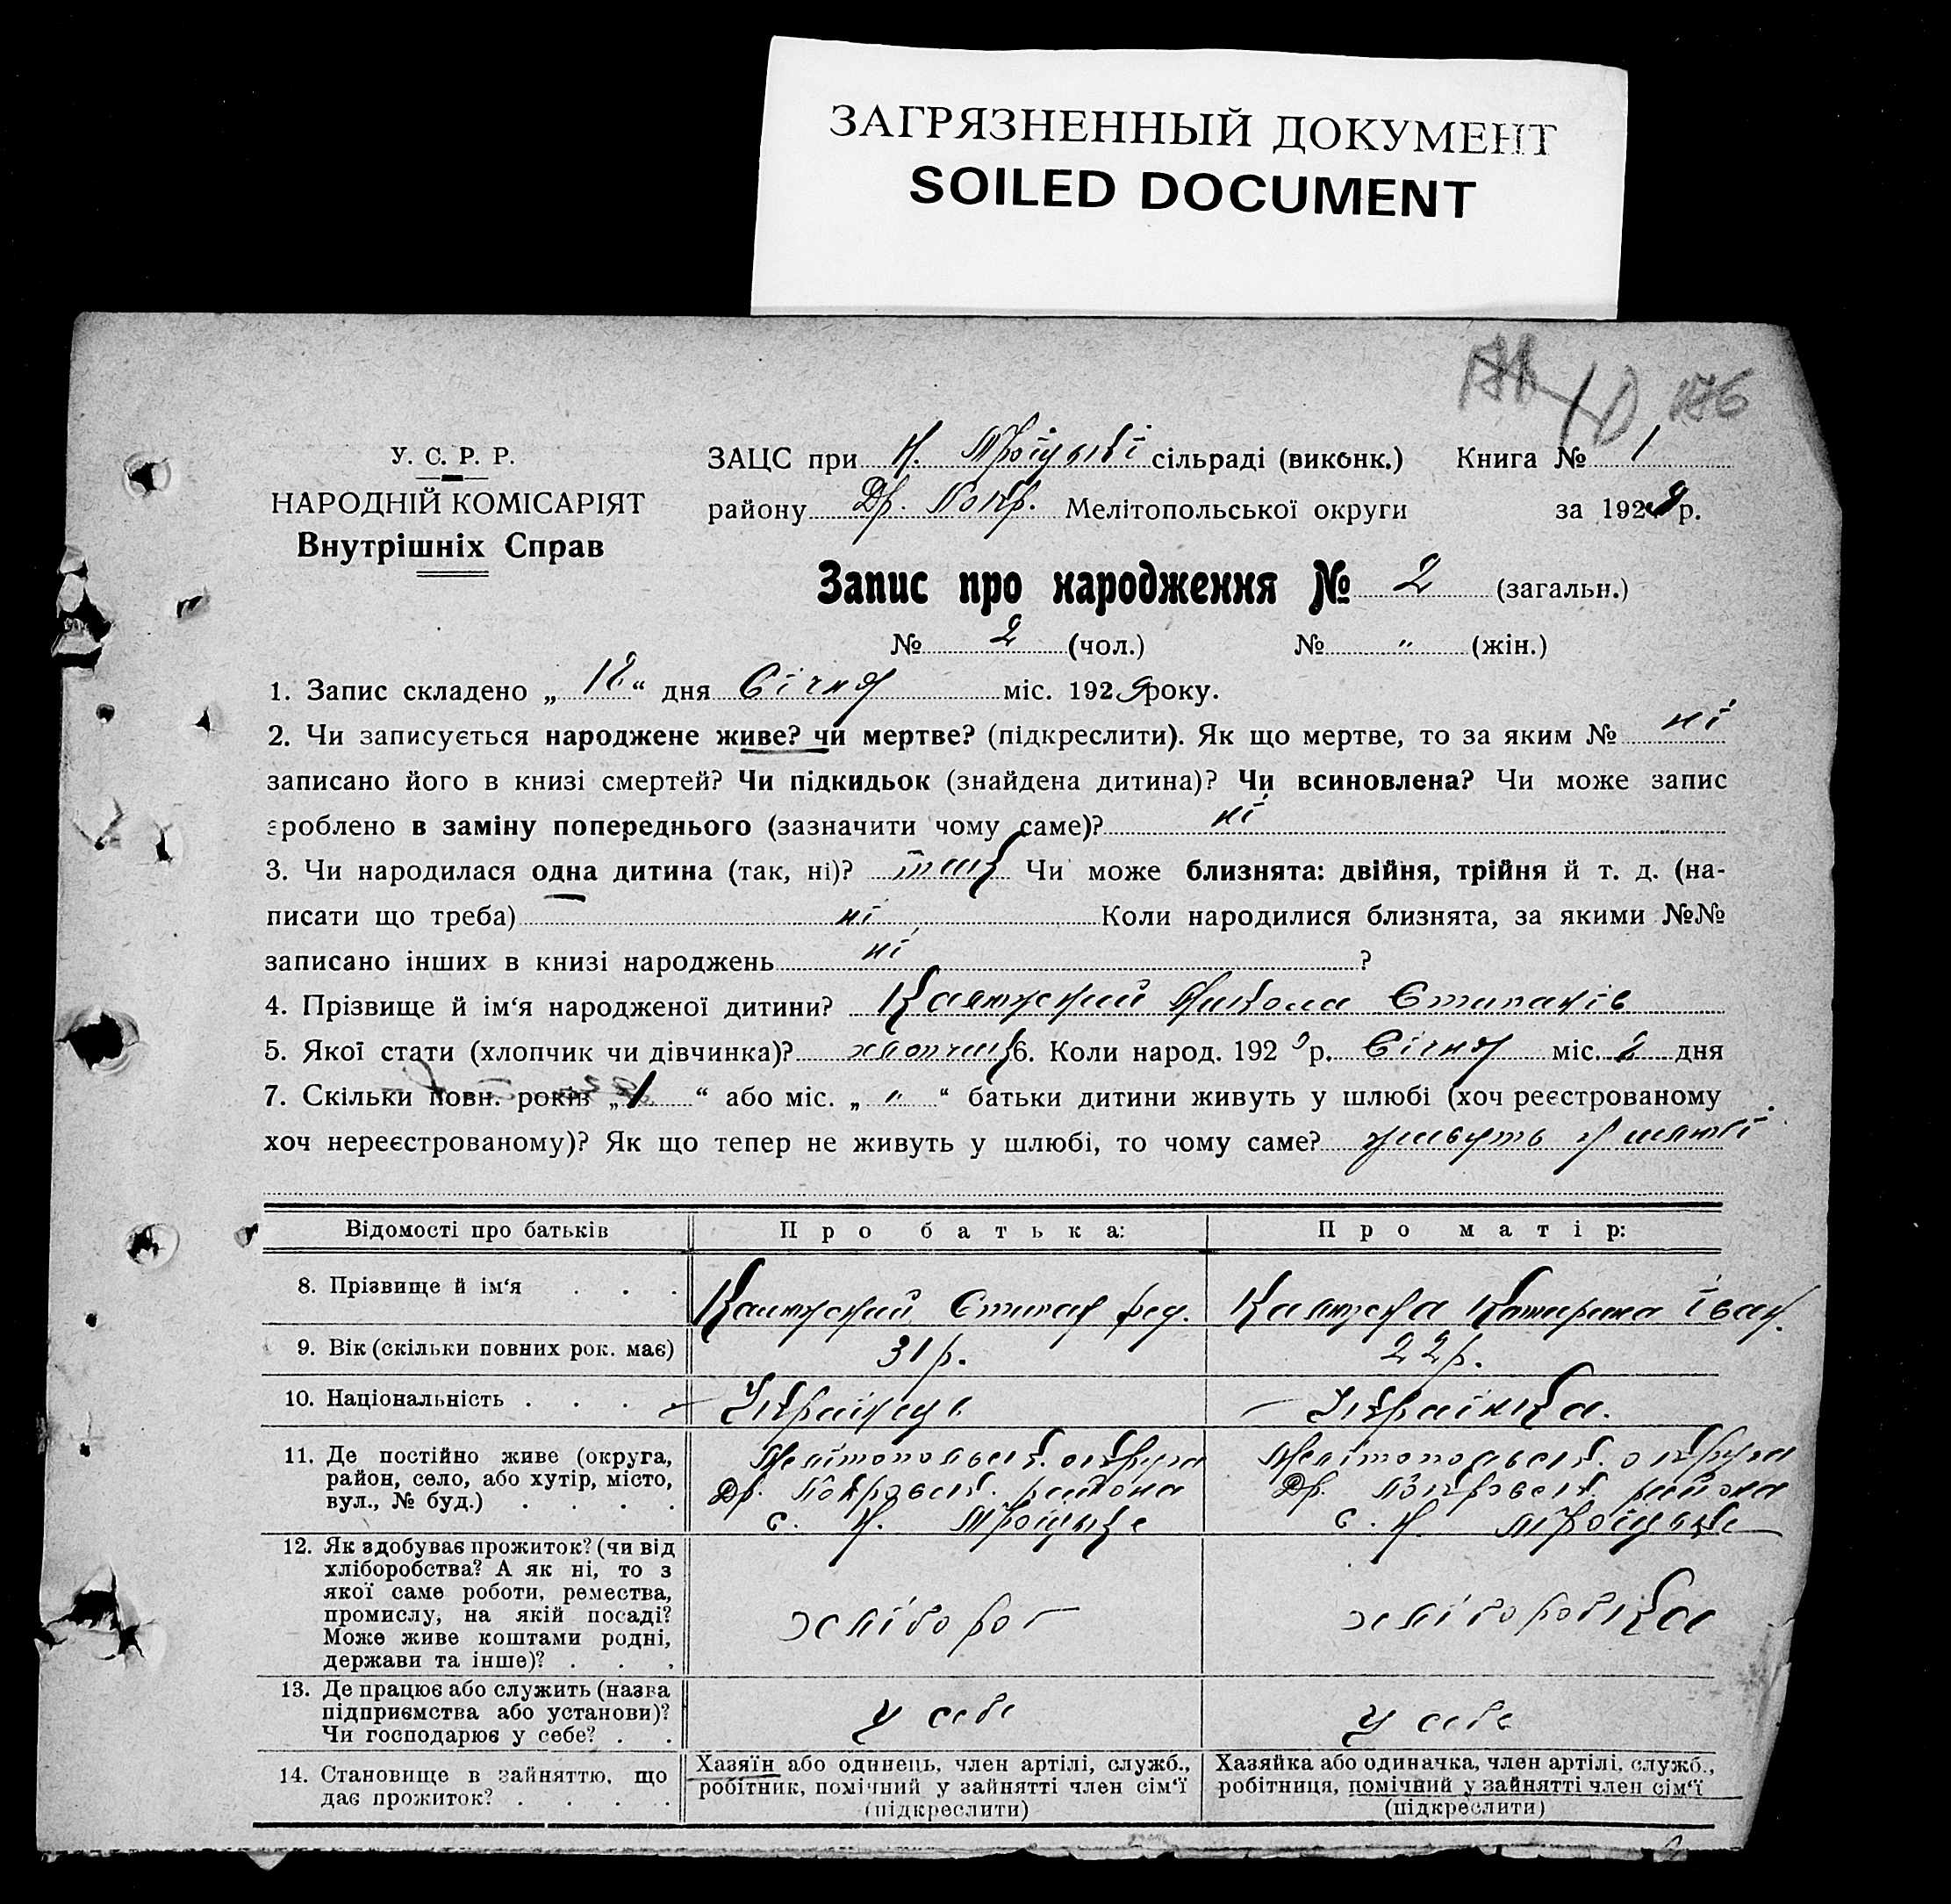 ЗАГРЯЗНЕННЫЙ ДОКУМЕНТ
SOILED DOCUMENT
176
У. С. Р. Р.
НАРОДНІЙ КОМІСАРІЯТ
Внутрішніх Справ
ЗАЦС при Н. Троіцькі сільраді (виконк.) Книга № 1
району Др. Покр. Мелітопольської округи за 1929 р.
Запис про народження № 2 (загальн.)
№ 2 (чол.) № " (жін.)
1. Запис складено „ 12 “ дня Січня міс. 1929 року.
2. Чи записується народжене живе? чи мертве? (підкреслити). Як що мертве, то за яким № ні
записано його в книзі смертей? Чи підкидьок (знайдена дитина)? Чи всиновлена? Чи може запис
зроблено в заміну попереднього (зазначити чому саме)? ні
3. Чи народилася одна дитина (так, ні)? так Чи може близнята: двійня, трійня й т. д. (на-
писати що треба) ні Коли народилися близнята, за якими №№
записано інших в книзі народжень ні ?
4. Прізвище й ім‘я народженої дитини? Микола Степанів
5. Якої стати (хлопчик чи дівчинка)? хлопчик 6. Коли народ. 1929 р. Січня міс. 2 дня
7. Скільки повн. років „ 1 “ або міс. „ " “ батьки дитини живуть у шлюбі (хоч реєстрованому
хоч нереєстрованому)? Як що тепер не живуть у шлюбі, то чому саме? живуть у
Відомості про батьків Про батька: Про матір:
8. Прізвище й ім‘я . . . Степан Фед. Катерина Іван.
9. Вік (скільки повних рок. має) 31 р. 22 р.
10. Національність . . . . Українець Українка.
11. Де постійно живе (округа, район, село, або хутір, місто, вул., № буд.) . . . .
Мелітопольськ. округа
Др. Покровськ. района
с. Н. Троіцьке
Мелітопольськ. округа
Др. Покровськ. района
с. Н. Троіцьке
12. Як здобуває прожиток? (чи від
хліборобства? А як ні, то з
якої саме роботи, ремества,
промислу, на якій посаді?
Може живе коштами родні,
держави та інше)? . . .
хлібороб
хліборобка
13. Де працює або служить (назва
підприємства або установи)?
Чи господарює у себе? . .
у себе
у себе
14. Становище в зайняттю, що
дає прожиток? . . . .
Хазяїн або одинець, член артілі, служб.,
робітник, помічний у зайнятті член сім‘ї
(підкреслити)
Хазяйка або одиначка, член артілі, служб.,
робітниця, помічний у зайнятті член сім‘ї
(підкреслити)